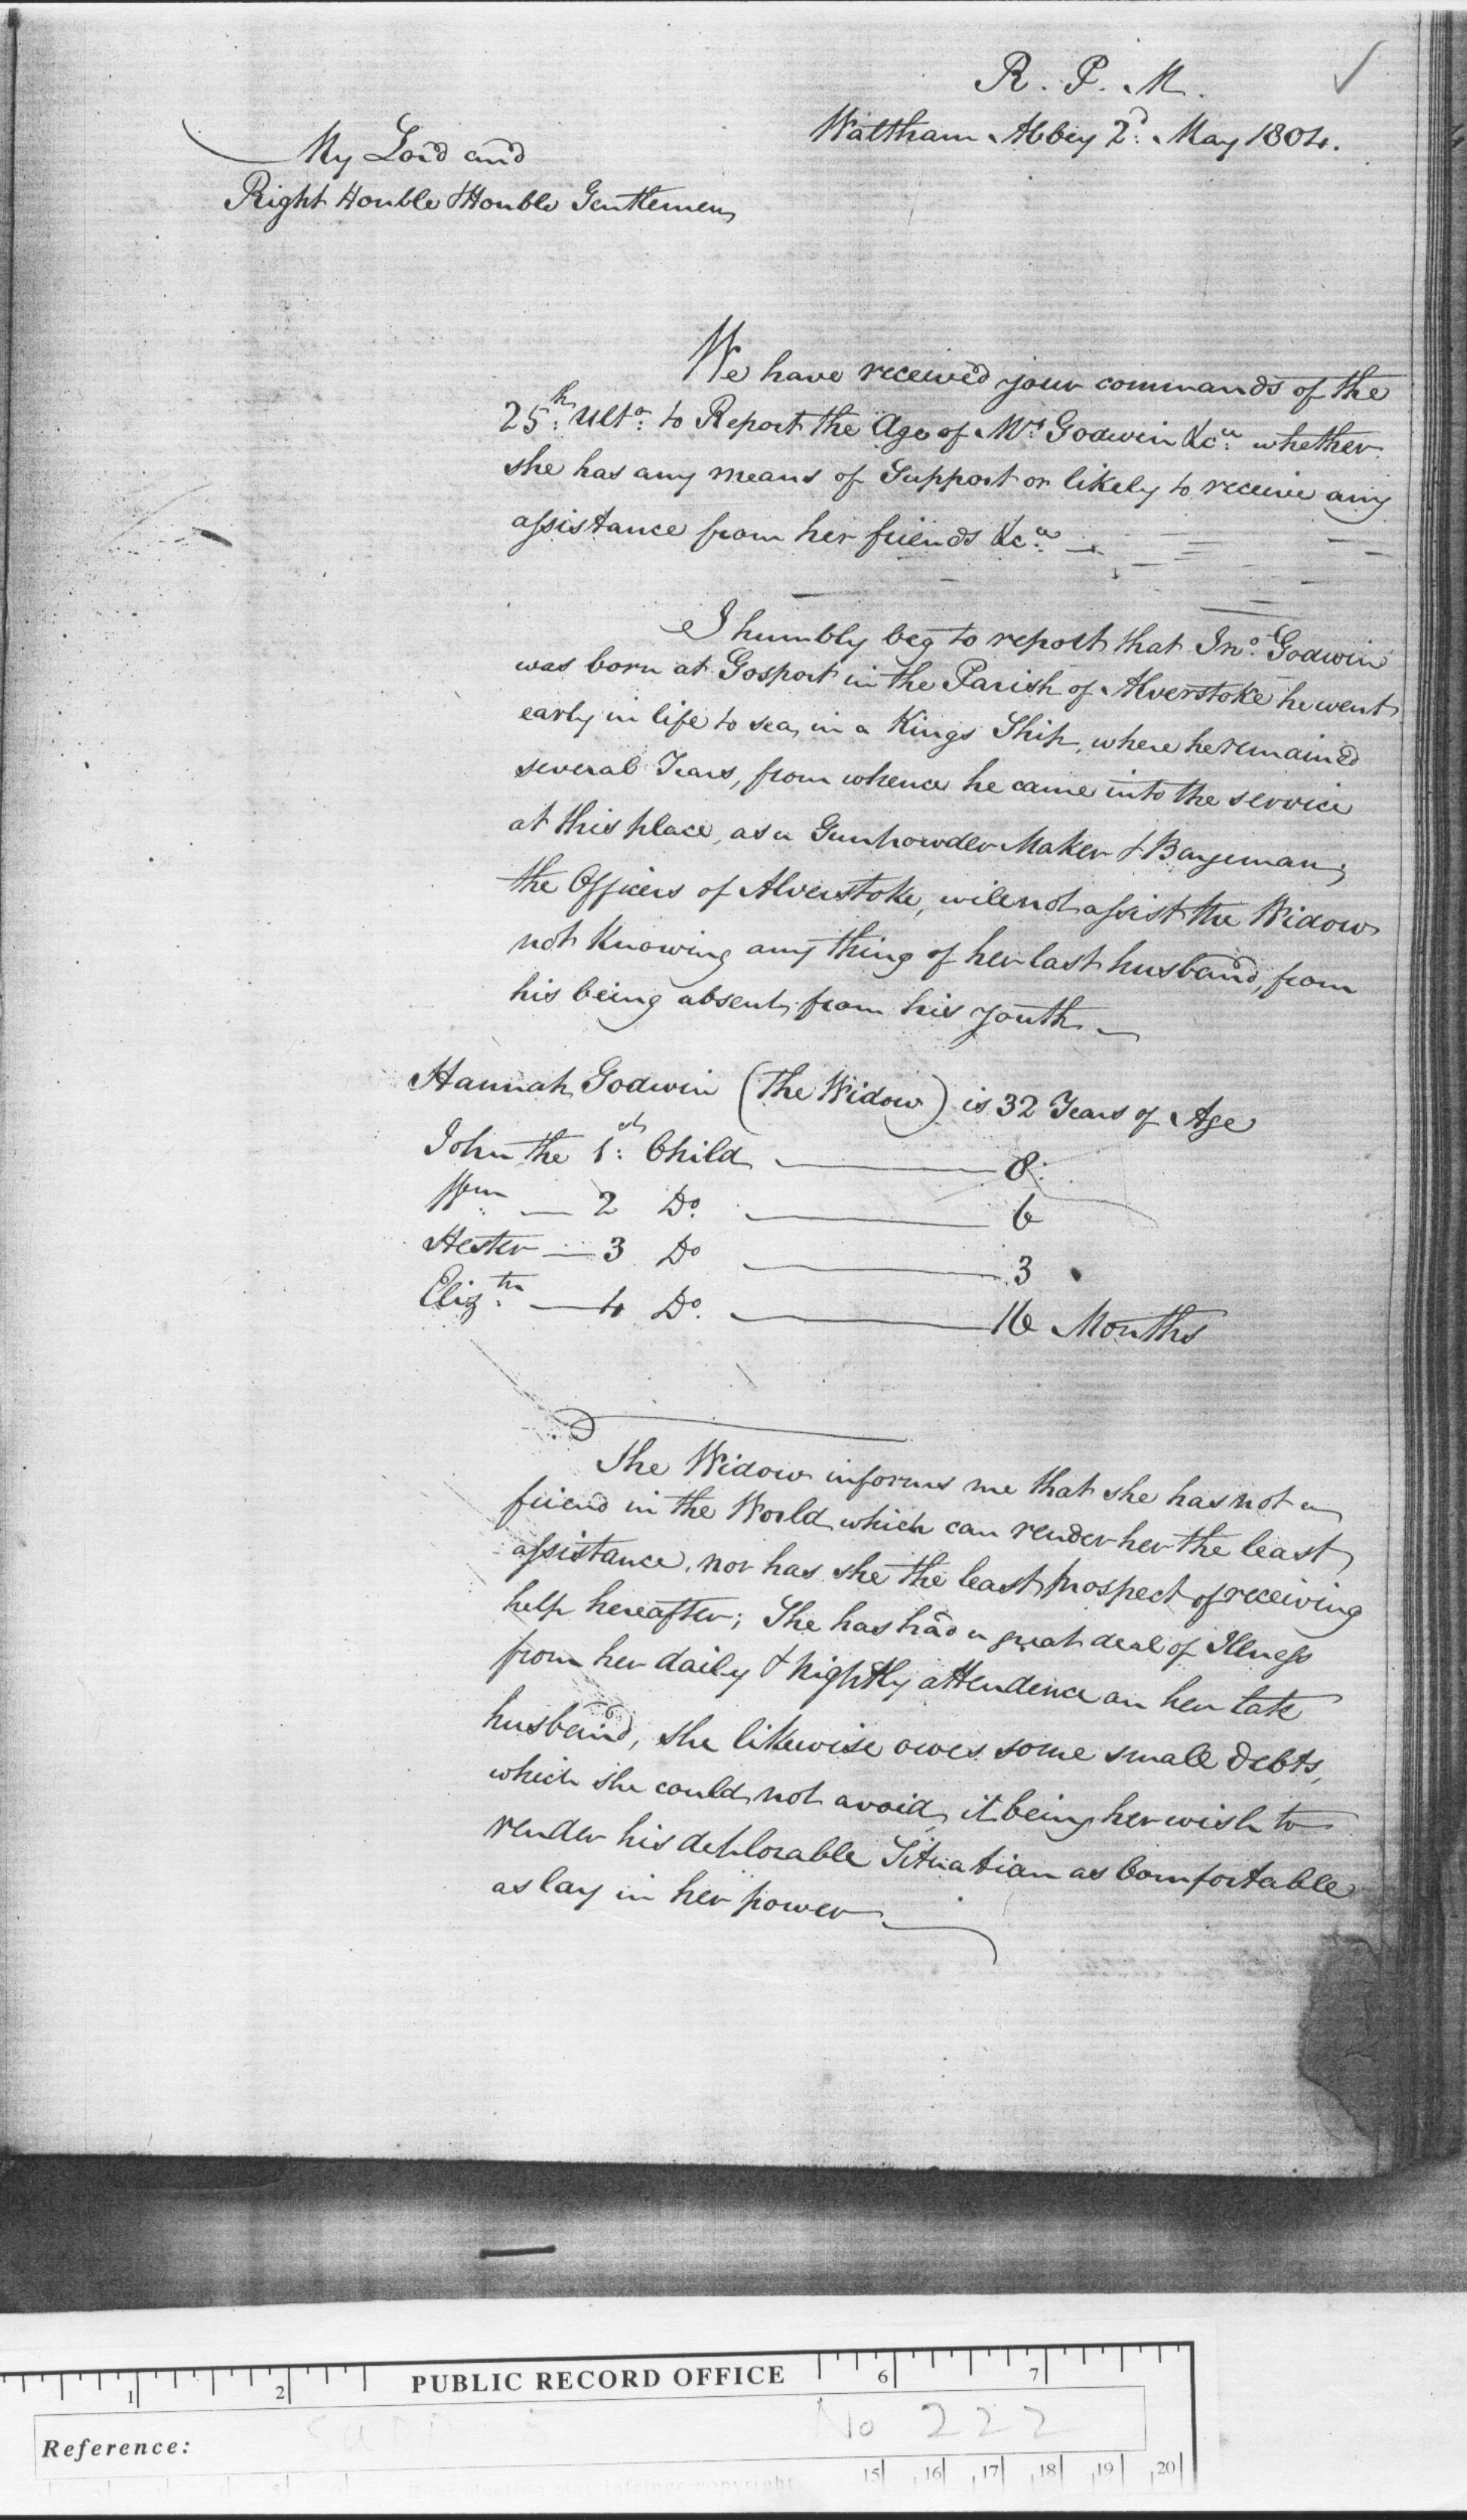 R. P. M.
Waltham Abbey 2d. May 1804.
My Lord and
Right Honble & Honble Gentlemen
We have received your commands of the
25th: Ulto: to Report the Age of Mrs Godwin &ca: whether
she has any means of Support or likely to receive any
assistance from her friends &ca:
I humbly beg to report that Jno: Godwin
was born at Gosport in the Parish of Alverstoke he went
early in life to sea, in a Kings Ship, where he remained
several Years, from whence he came into the service
at this place, as a Gunpowder Maker & Bargeman;
the Officers of Alverstoke, will not assist the Widow
not Knowing any thing of her last husband, from
his being absent, from his youth
Hannah Godwin (The Widow) is 32 Years of Age
John the 1st: Child — 8:
Wm: — 2 Do. — 6
Hester — 3 Do — 3
Elizth: — 4 Do. — 16 Months
The Widow informs me that she has not a
friend in the World which can render her the least
assistance, nor has she the least prospect of receiving
help hereafter; She has had a great deal of Illness
from her daily & nightly attendence on her late
husband, she likewise owes some small debts,
which she could not avoid, it being her wish to
render his deplorable Situation as Comfortable
as lay in her power
PUBLIC RECORD OFFICE
1 2 6 7
No 222
Reference:
15 16 17 18 19 20